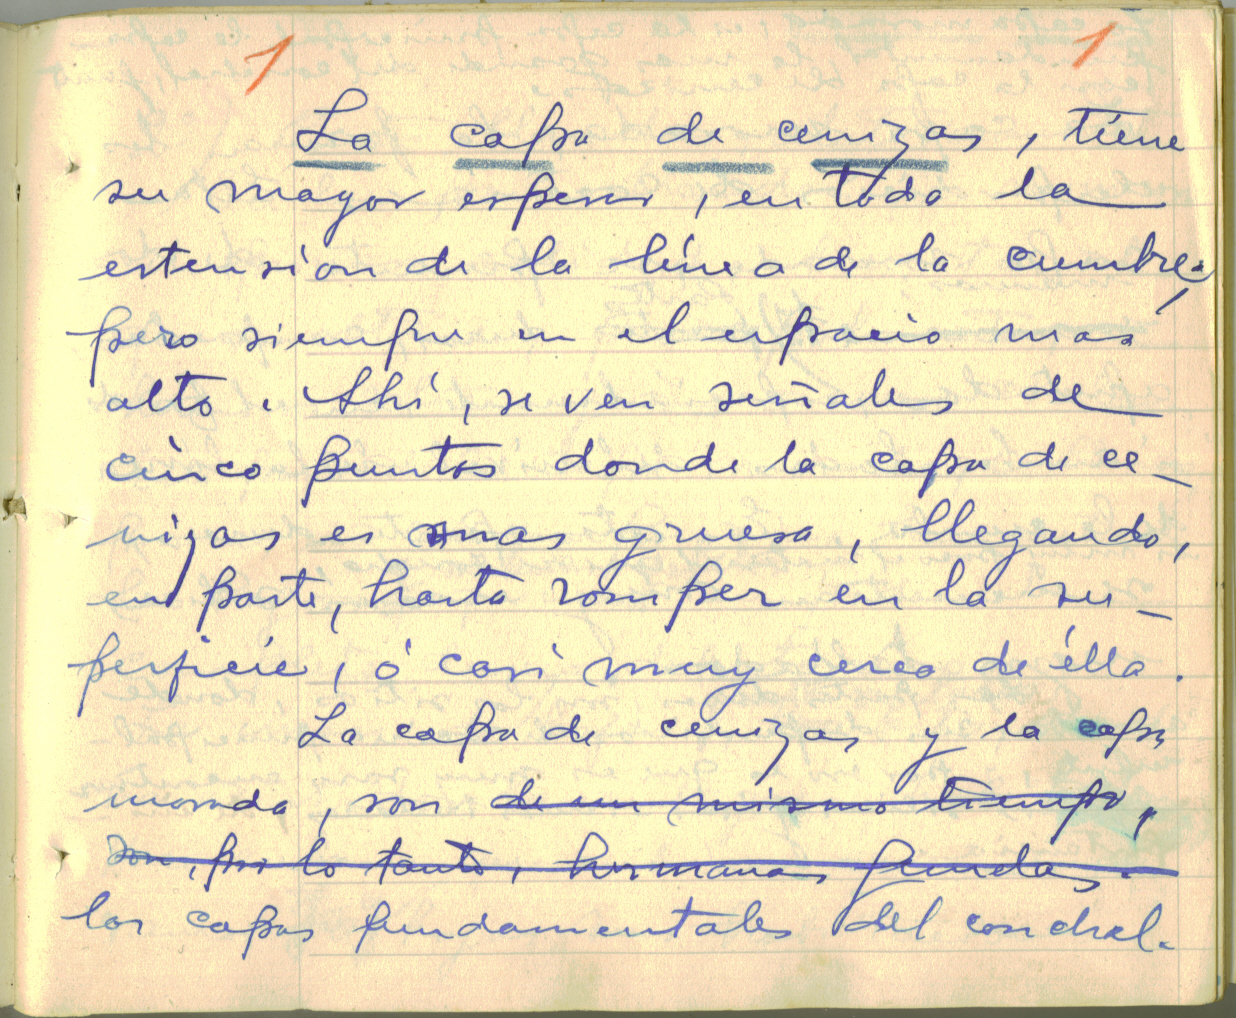 1 1
La capa de cenizas, tiene
su mayor espesor, en toda la
estensión de la línea de la cumbre,
pero siempre en el espacio mas
alto. Ahí, se ven señales de
cinco puntos donde la capa de ce-
nizas es mas gruesa, llegando,
en parte, hasta romper en la su-
perficie, ó casi muy cerca de élla.
La capa de cenizas y la capa
morada, son de un mismo tiempo,
son, por lo tanto, hermanas jumelas.
las capas fundamentales del conchal.